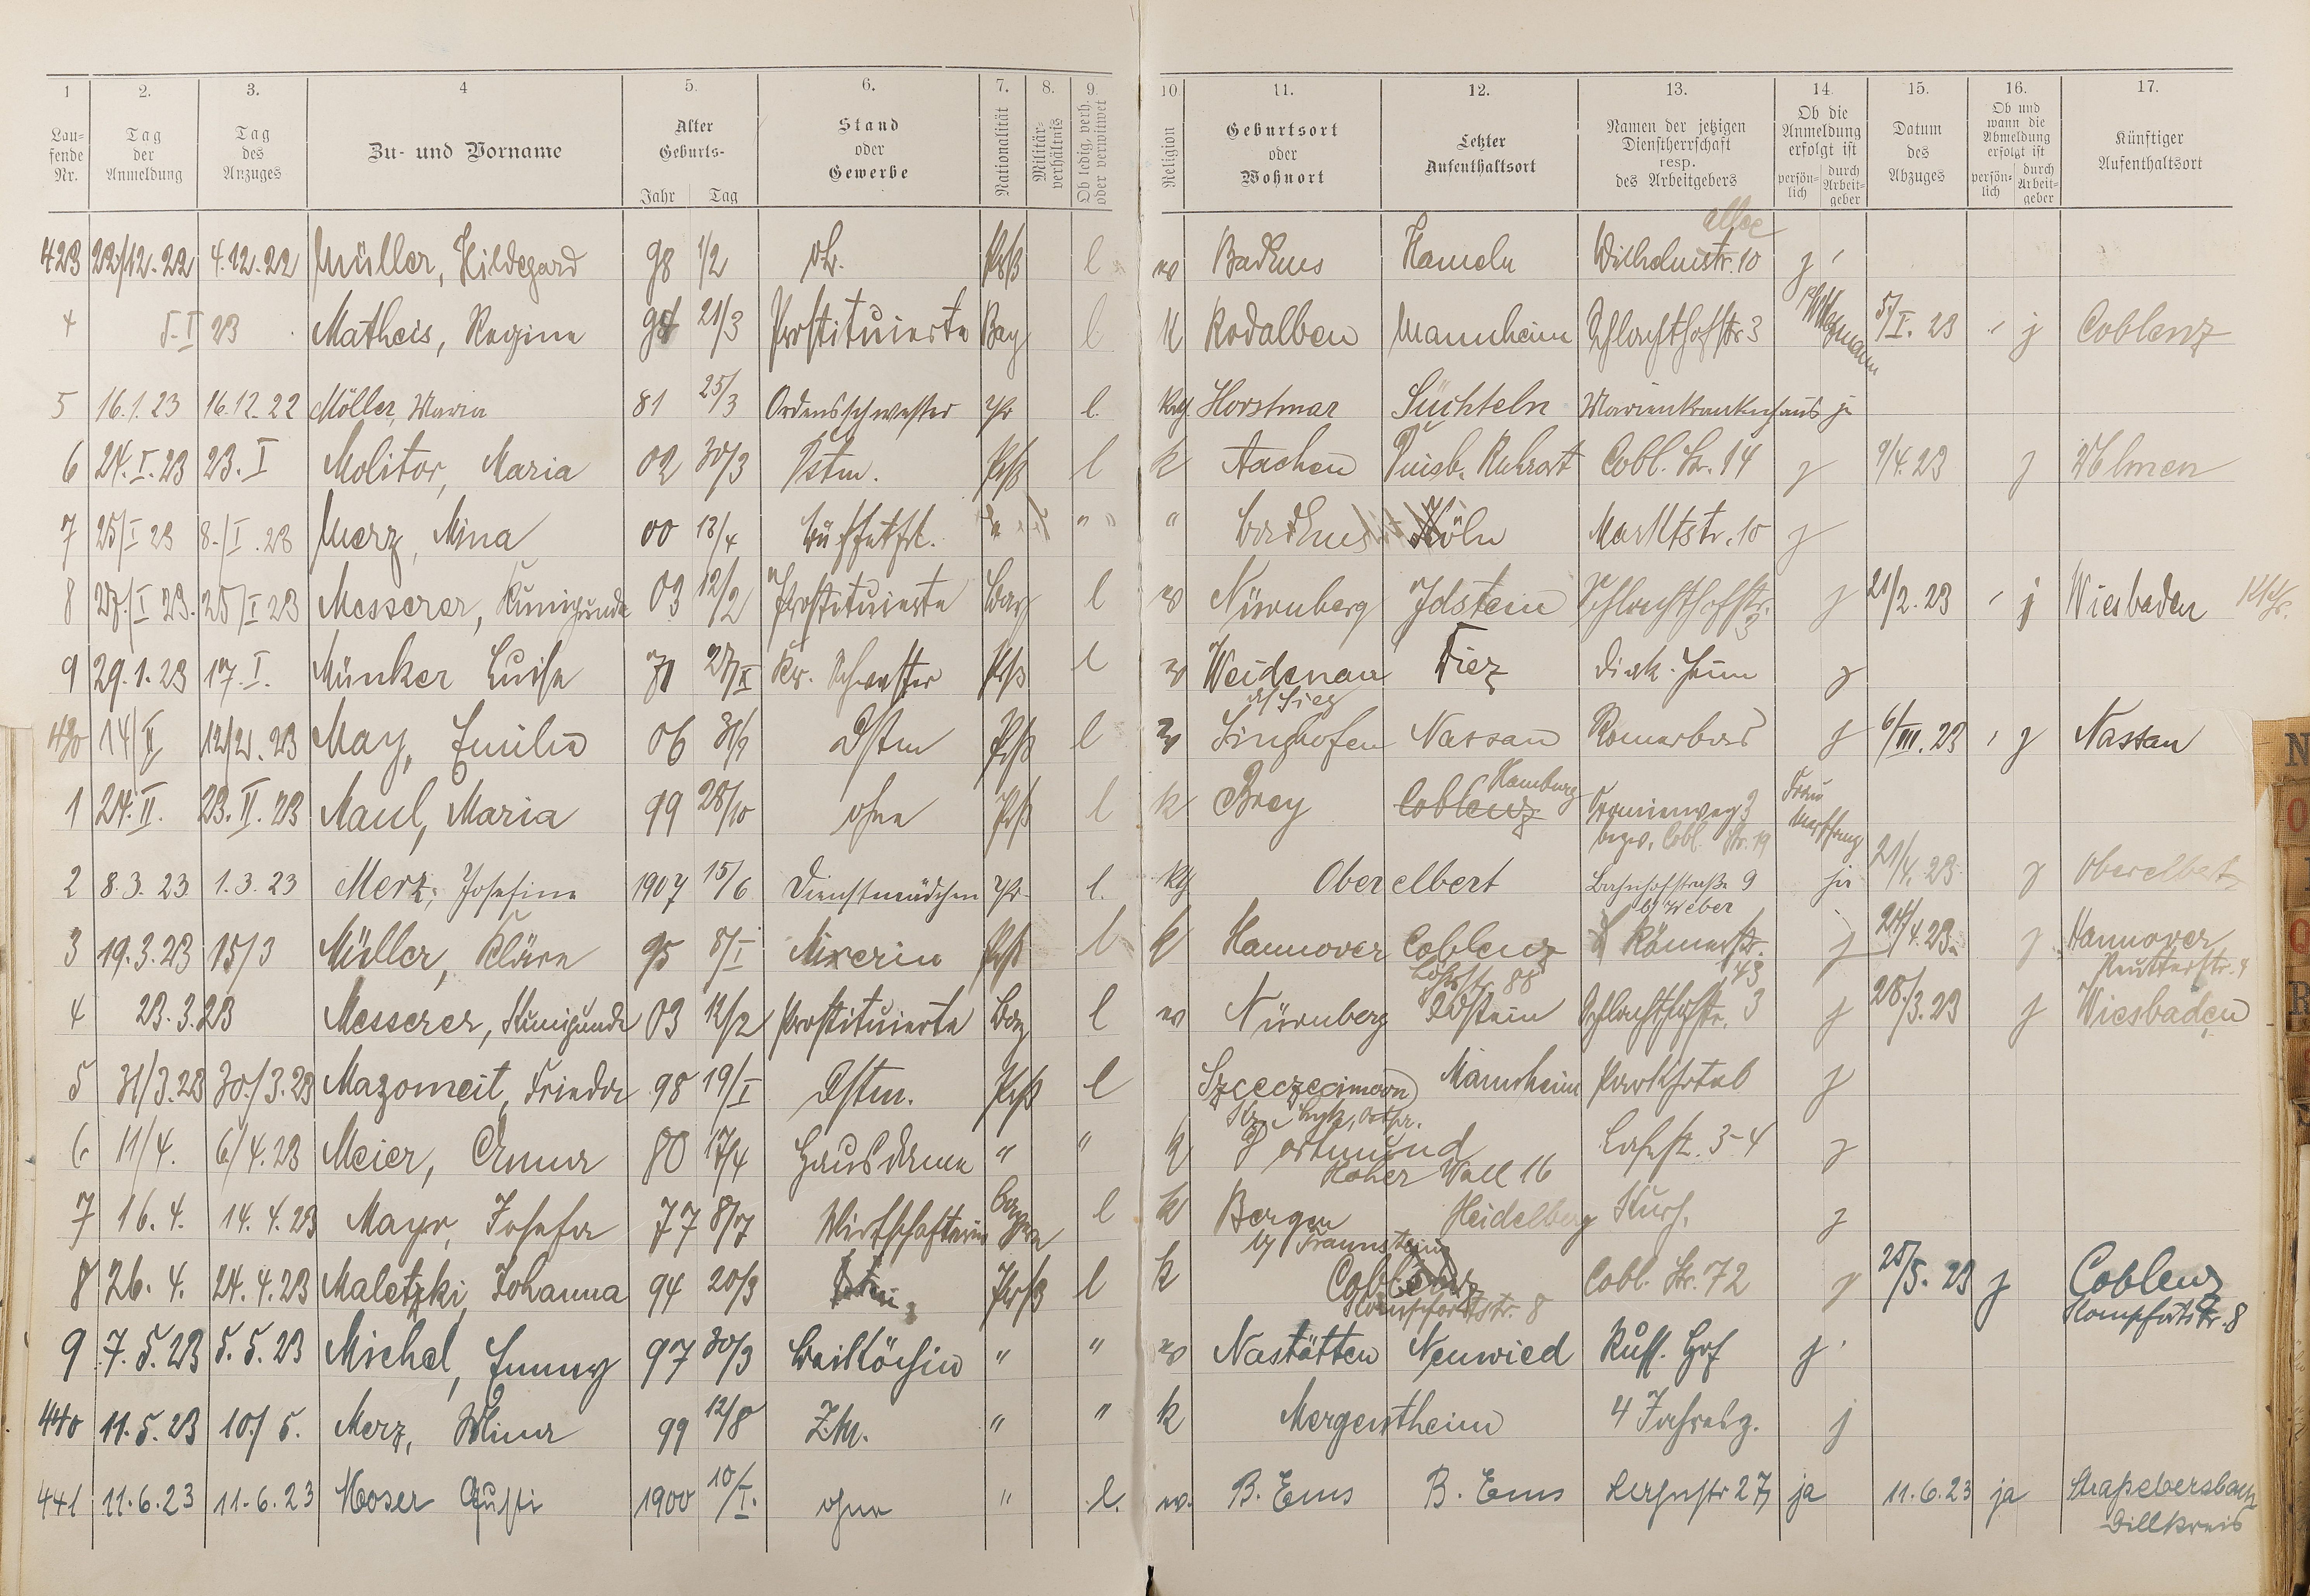 1 2. 3. 4 5. 6. 7. 8. 9. 10. 11. 12. 13. 14. 15. 16. 17.
Lau-fende Nr. Tag der Anmeldung Tag des Anzuges Zu- und Vorname Alter Geburts- Jahr Tag Stand oder Gewerbe Nationalität Militär-verhältnis Ob ledig, verh. oder verwitwet Religion Geburtsort oder Wohnort Letzter Aufenthaltsort Namen der jetzigen Dienstherrschaft resp. des Arbeitgebers Ob die Anmeldung erfolgt ist persön-lich durch Arbeit-geber Datum des Abzuges Ob und wann die Abmeldung erfolgt ist persön-lich durch Arbeit-geber Künftiger Aufenthaltsort
allee
423 22/12.22 4.12.22 Müller, Hildegard 98 1/2 Prß l w Bad Ems Hameln Wilhelmstr. 10 j
4 5.I 23 Matheis, Regine 21/3 Prostituierte Bay l K Rodalben Mannheim Schlachthofstr 3 5/I. 23 j Coblenz
5 16.1.23 16.12.22 Möller, Maria 81 25/3 Ordensschwester Pr l. Kath Horstmar Süchteln Marienkrankenhaus ja
6 24.I.23 23.I Molitor, Maria 02 30/3 Dstm. Prß l k Aachen Duisb. Ruhrort Cobl. Str. 14 j 9/4.23 j Ulmen
7 25/I 23 8./I.23 Merz, Mina 00 13/4 Büffetfrl. " " " Bad Ems Köln Marktstr. 10 j
8 27./I 23. 25/I 23 Messerer, Kunigunde 03 12/2 Prostituierte Bay l w Nürnberg Idstein Schlachthofstr. 3 j 21/2.23 j Wiesbaden
9 29.1.23 17.I. Münker Luise 71 Kr. Schwester Prß l w Weidenau a/Sieg Diez Diak. Heim j
430 14/II 12/2.23 May, Emilie 06 Dstm Prß l w Singhofen Nassau Römerbad j 6/III.23 j Nassau
1 24.II. 23.II.23 Maul, Maria 99 28/10 ohne Prß l k Brey Coblenz Hamburg
bezw. Cobl. Str. 19 Frau
2 8.3.23 1.3.23 Merz, Josefine 1907 15/6 Dienstmädchen Pr. l. Kth Oberelbert Bahnhofstraße 9 ja 21/4.23 j Oberelbert
b/Weber
3 19.3.23 15/3 Müller, Kläre 95 8/I Mixerin Prß l k Hannover Coblenz Römerstr. 43 j 24/4.23. j Hannover
Löhrstr. 88
4 23.3.23 Messerer, Kunigunde 03 12/2 Prostituierte Bay l w Nürnberg Idstein Schlachthofstr. 3 j 28./3.23 j Wiesbaden
5 31/3.23 30./3.23 Mazomeit, Frieda 98 19/I Dstm. Prß l Mannheim Parkhotel j
Kr. Lyck, Ostpr.
6 11/4. 6/4.23 Meier, Anna 80 17/4 Hausdame " " k Dortmund Lahnstr. 3-4 j
Hoher Wall 16
7 16.4. 14.4.23 Mayr, Josefa 77 8/7 Wirtschafterin Bayern l k Bergen Heidelberg Kurh. j
b/ Traunstein
8 26.4. 24.4.23 Maletzki, Johanna 94 20/3 Prß l k Coblenz Cobl. Str. 72 j 25/5.23 j Coblenz
Kompfortstr. 8 Kompfortstr. 8
9 7.5.23 5.5.23 Michel, Emmy 97 30/3 Beiköchin " " w Nastätten Neuwied Russ. Hof j
440 11.5.23 10./5. Merz, Mina 99 12/8 Z.M. " " k Mergentheim 4 Jahresz. j
441 11.6.23 11.6.23 Moser Gusti 1900 10/I. ohne " l. w. B. Ems B. Ems Lahnstr 27 ja 11.6.23 ja Straßebersbach
Dillkreis